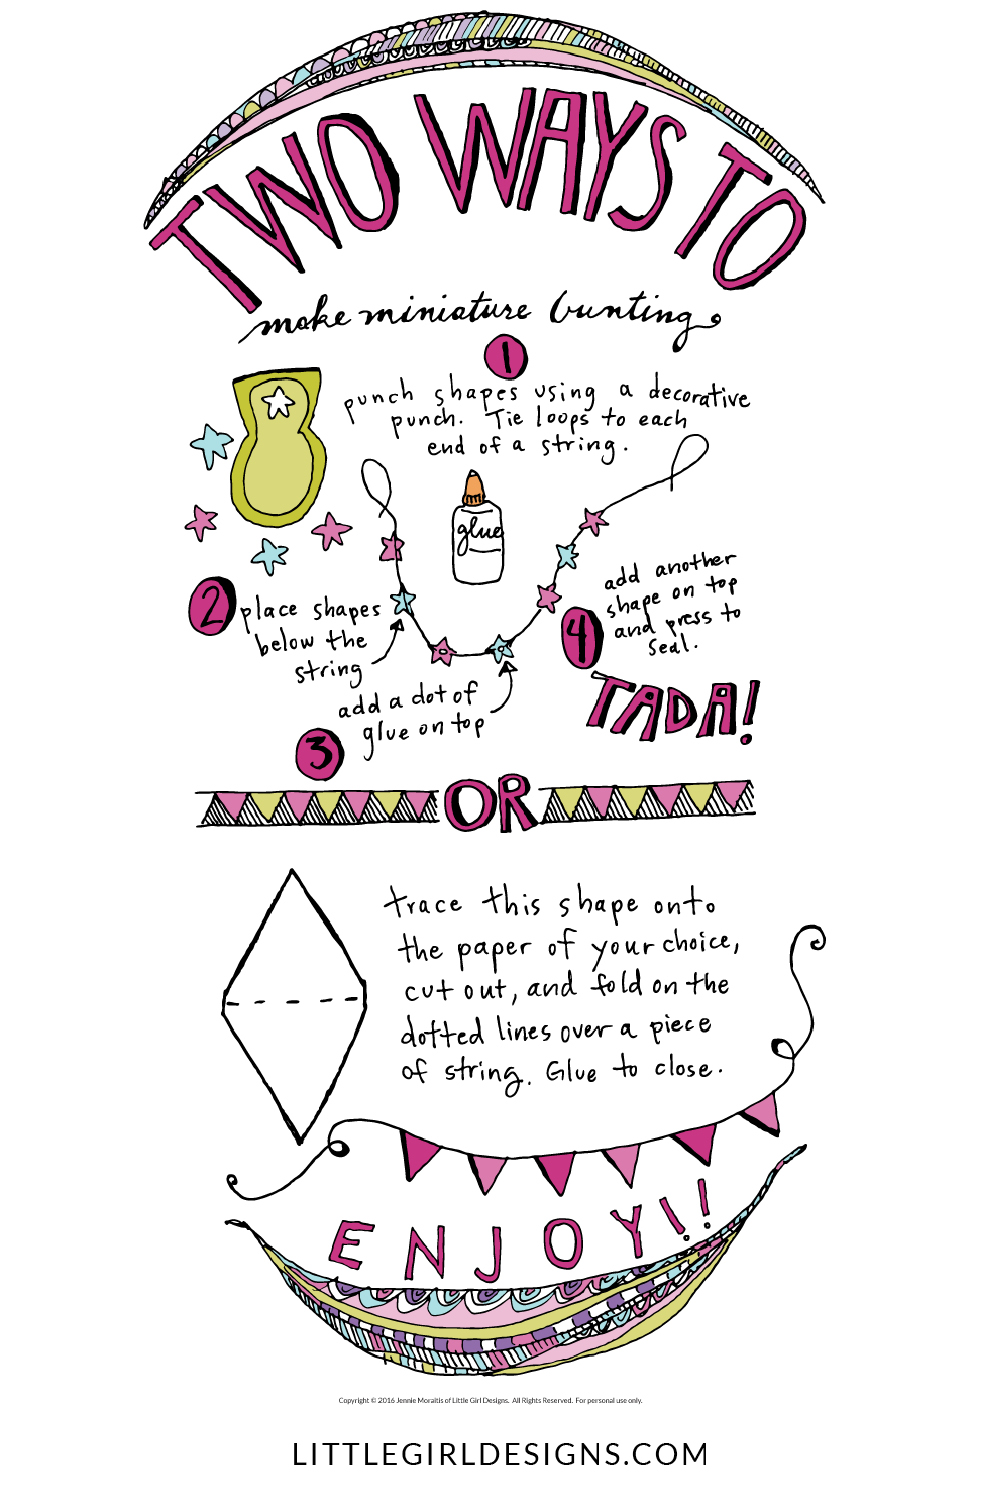 TWO WAYS TO
make miniature bunting
1
punch shapes using a decorative
punch. Tie loops to each
end of a string.
glue
2
place shapes
below the
string
3
add a dot of
glue on top
4
add another
shape on top
and press to
seal.
TADA!
OR
trace this shape onto
the paper of your choice,
cut out, and fold on the
dotted lines over a piece
of string. Glue to close.
ENJOY!!
Copyright © 2016 Jennie Moraitis of Little Girl Designs. All Rights Reserved. For personal use only.
LITTLEGIRLDESIGNS.COM